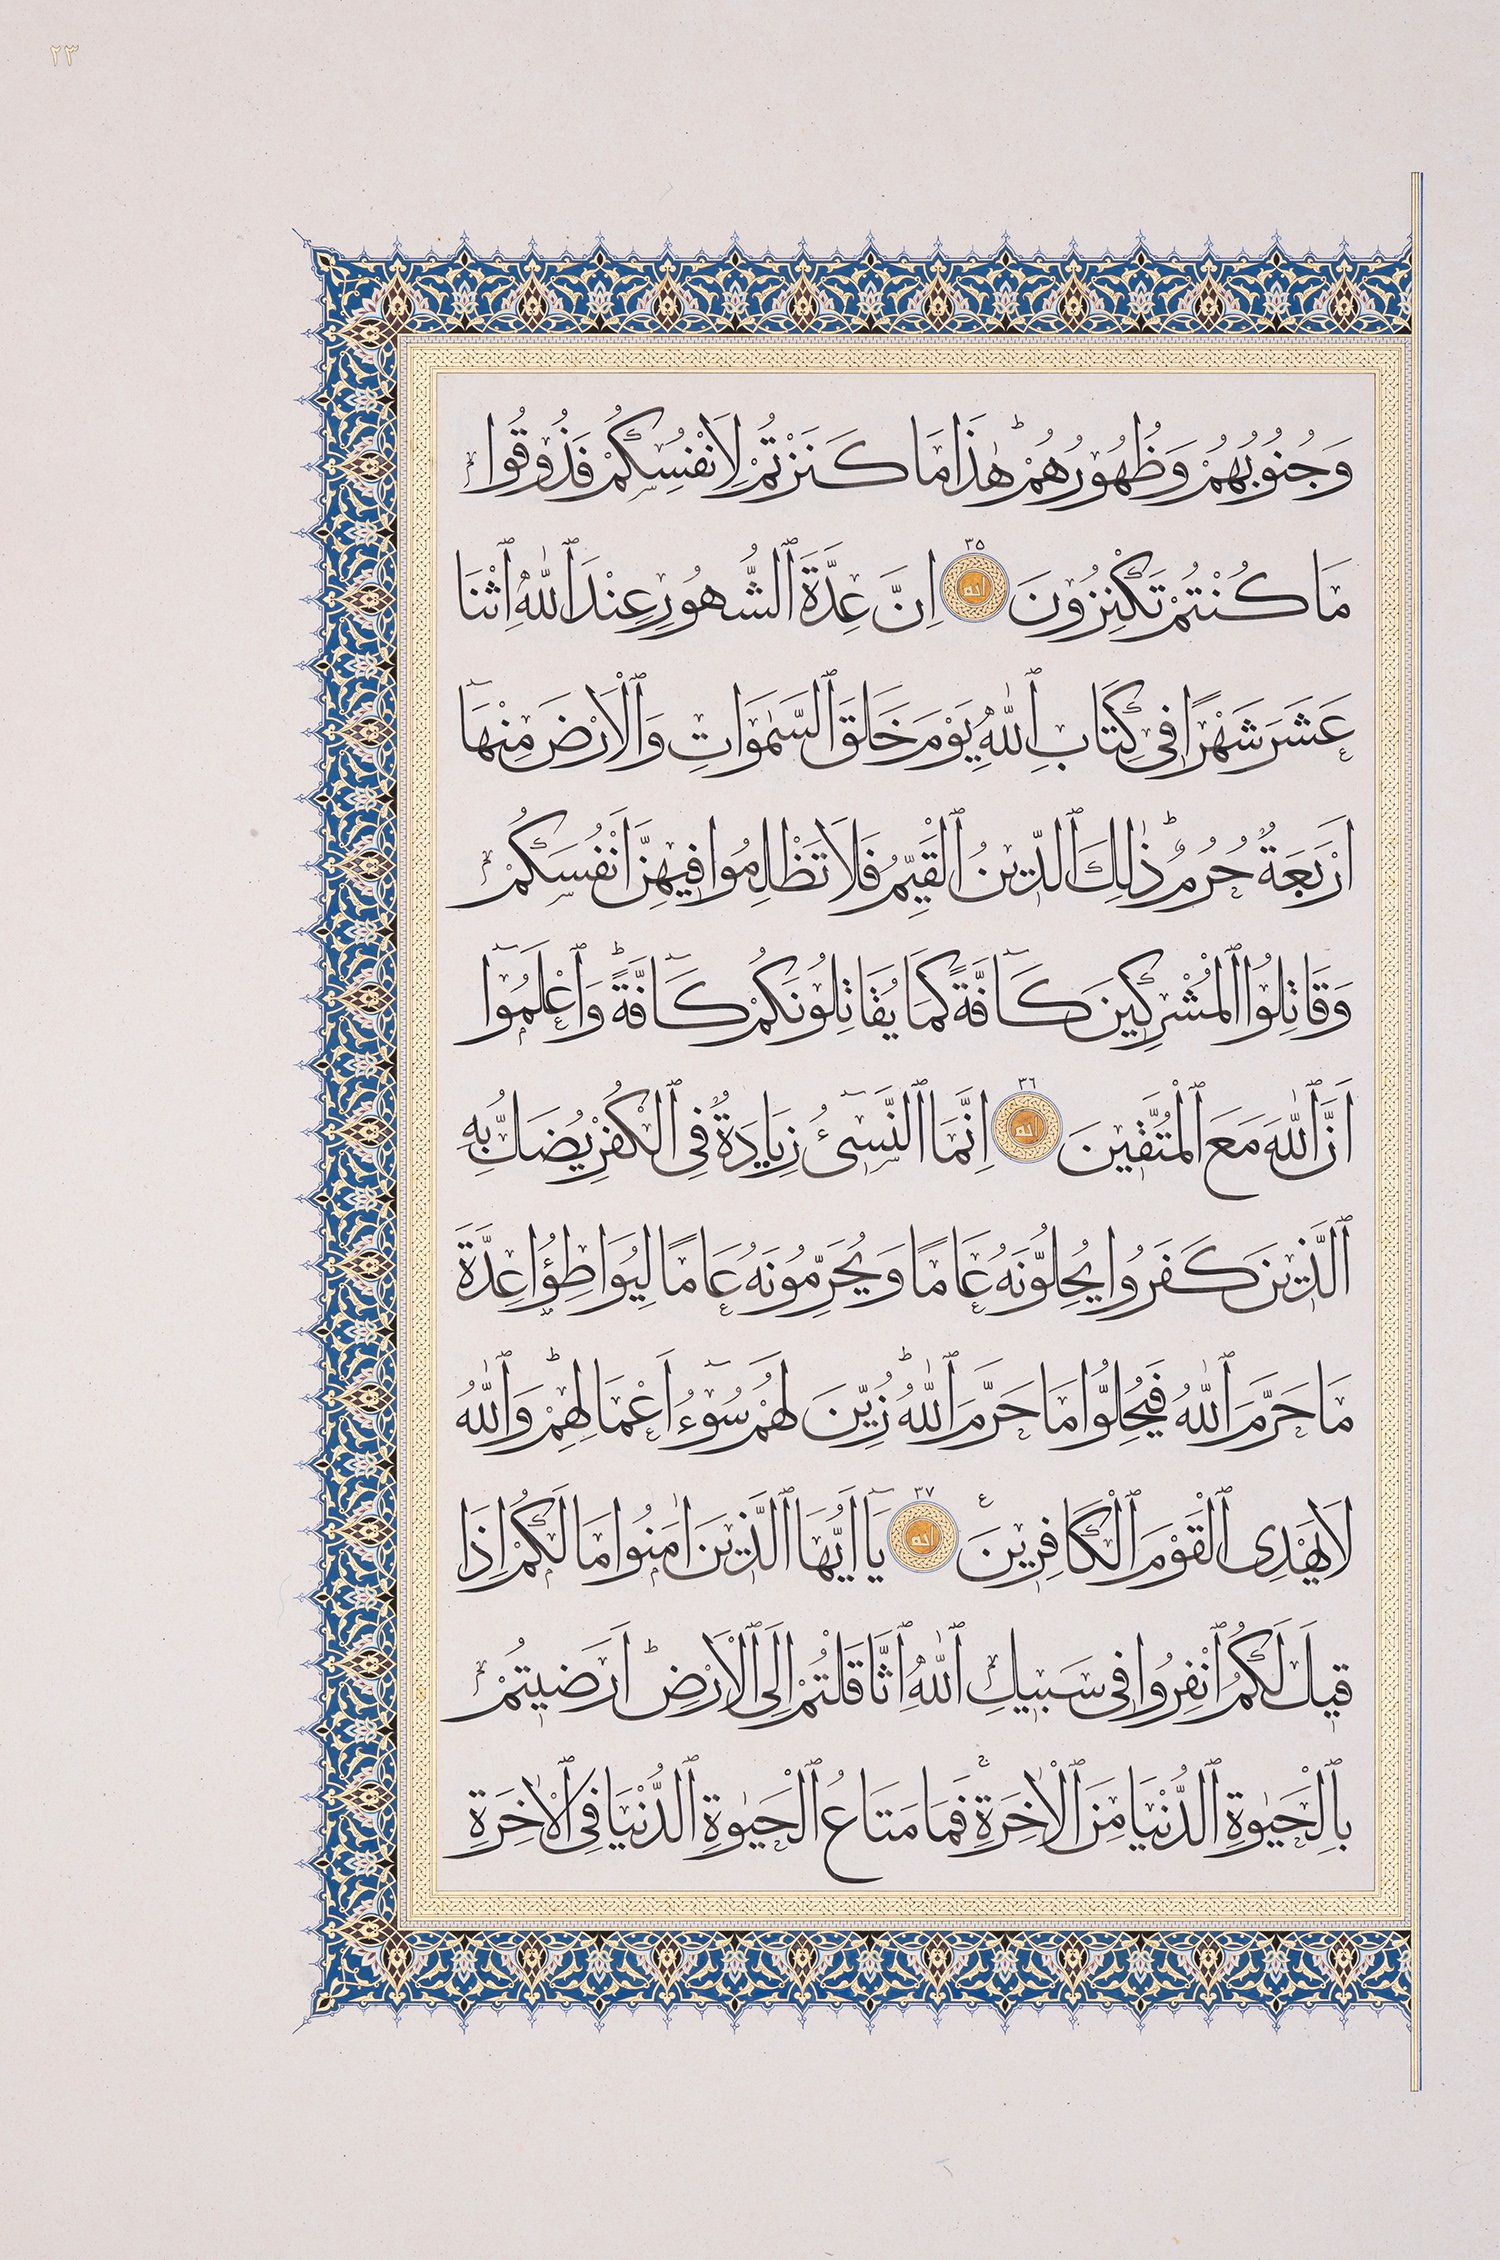 ٢٣
وَجُنُوبُهُمْ وَظُهُورُهُمْ ۜ هٰذَا مَا كَنَزْتُمْ لِاَنْفُسِكُمْ فَذُوقُوا
مَا كُنْتُمْ تَكْنِزُونَ ٣٥ اِنَّ عِدَّةَ ٱلشُّهُورِ عِنْدَ ٱللّٰهِ ٱثْنَا
عَشَرَ شَهْرًا فِى كِتَابِ ٱللّٰهِ يَوْمَ خَلَقَ ٱلسَّمٰوَاتِ وَٱلْاَرْضَ مِنْهَٓا
اَرْبَعَةٌ حُرُمٌ ۜ ذٰلِكَ ٱلدِّينُ ٱلْقَيِّمُ فَلَا تَظْلِمُوا فِيهِنَّ اَنْفُسَكُمْ
وَقَاتِلُوا ٱلْمُشْرِكِينَ كَٓافَّةً كَمَا يُقَاتِلُونَكُمْ كَٓافَّةً ۜ وَٱعْلَمُٓوا
اَنَّ ٱللّٰهَ مَعَ ٱلْمُتَّقِينَ ٣٦ اِنَّمَا ٱلنَّسِٓىءُ زِيَادَةٌ فِى ٱلْكُفْرِ يُضَلُّ بِهِ
ٱلَّذِينَ كَفَرُوا يُحِلُّونَهُ عَامًا وَيُحَرِّمُونَهُ عَامًا لِيُوَاطِؤُا عِدَّةَ
مَا حَرَّمَ ٱللّٰهُ فَيُحِلُّوا مَا حَرَّمَ ٱللّٰهُ ۜ زُيِّنَ لَهُمْ سُٓوءُ اَعْمَالِهِمْ ۜ وَٱللّٰهُ
لَا يَهْدِى ٱلْقَوْمَ ٱلْكَافِرِينَ ع ٣٧ يَٓا اَيُّهَا ٱلَّذِينَ اٰمَنُوا مَا لَكُمْ اِذَا
قِيلَ لَكُمُ ٱنْفِرُوا فِى سَبِيلِ ٱللّٰهِ ٱثَّاقَلْتُمْ اِلَى ٱلْاَرْضِ ۜ اَرَضِيتُمْ
بِٱلْحَيٰوةِ ٱلدُّنْيَا مِنَ ٱلْاٰخِرَةِ ۚ فَمَا مَتَاعُ ٱلْحَيٰوةِ ٱلدُّنْيَا فِى ٱلْاٰخِرَةِ